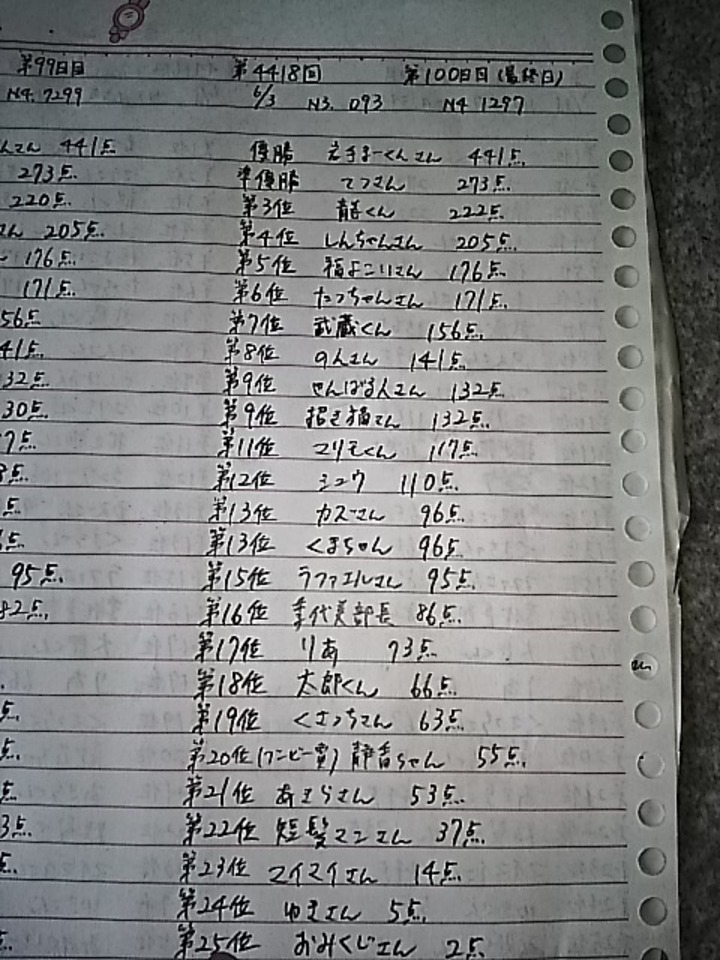 第99日目 第4418回 第100日目(最終日)
N4. 7299 6/3 N3. 093 N4 1297
んさん 441点 優勝 えまーくんさん 441点
273点 準優勝 てつさん 273点
220点 第3位 くん 222点
ん 205点 第4位 しんちゃんさん 205点
176点 第5位 176点
171点 第6位 たっちゃんさん 171点
56点 第7位 武蔵くん 156点
41点 第8位 のんさん 141点
32点 第9位 せんばる人さん 132点
30点 第9位 招き猫さん 132点
7点 第11位 マリモくん 117点
点 第12位 シュウ 110点
点 第13位 カズさん 96点
点 第13位 くまちゃん 96点
95点 第15位 ラファエルさん 95点
82点 第16位 季代美部長 86点
第17位 りあ 73点
第18位 太郎くん 66点
点 第19位 くさっちさん 63点
点 第20位(ブービー賞) 静香ちゃん 55点
点 第21位 あきらさん 53点
3点 第22位 短髪マンさん 37点
点 第23位 マイマイさん 14点
第24位 ゆきさん 5点
第25位 おみくじさん 2点